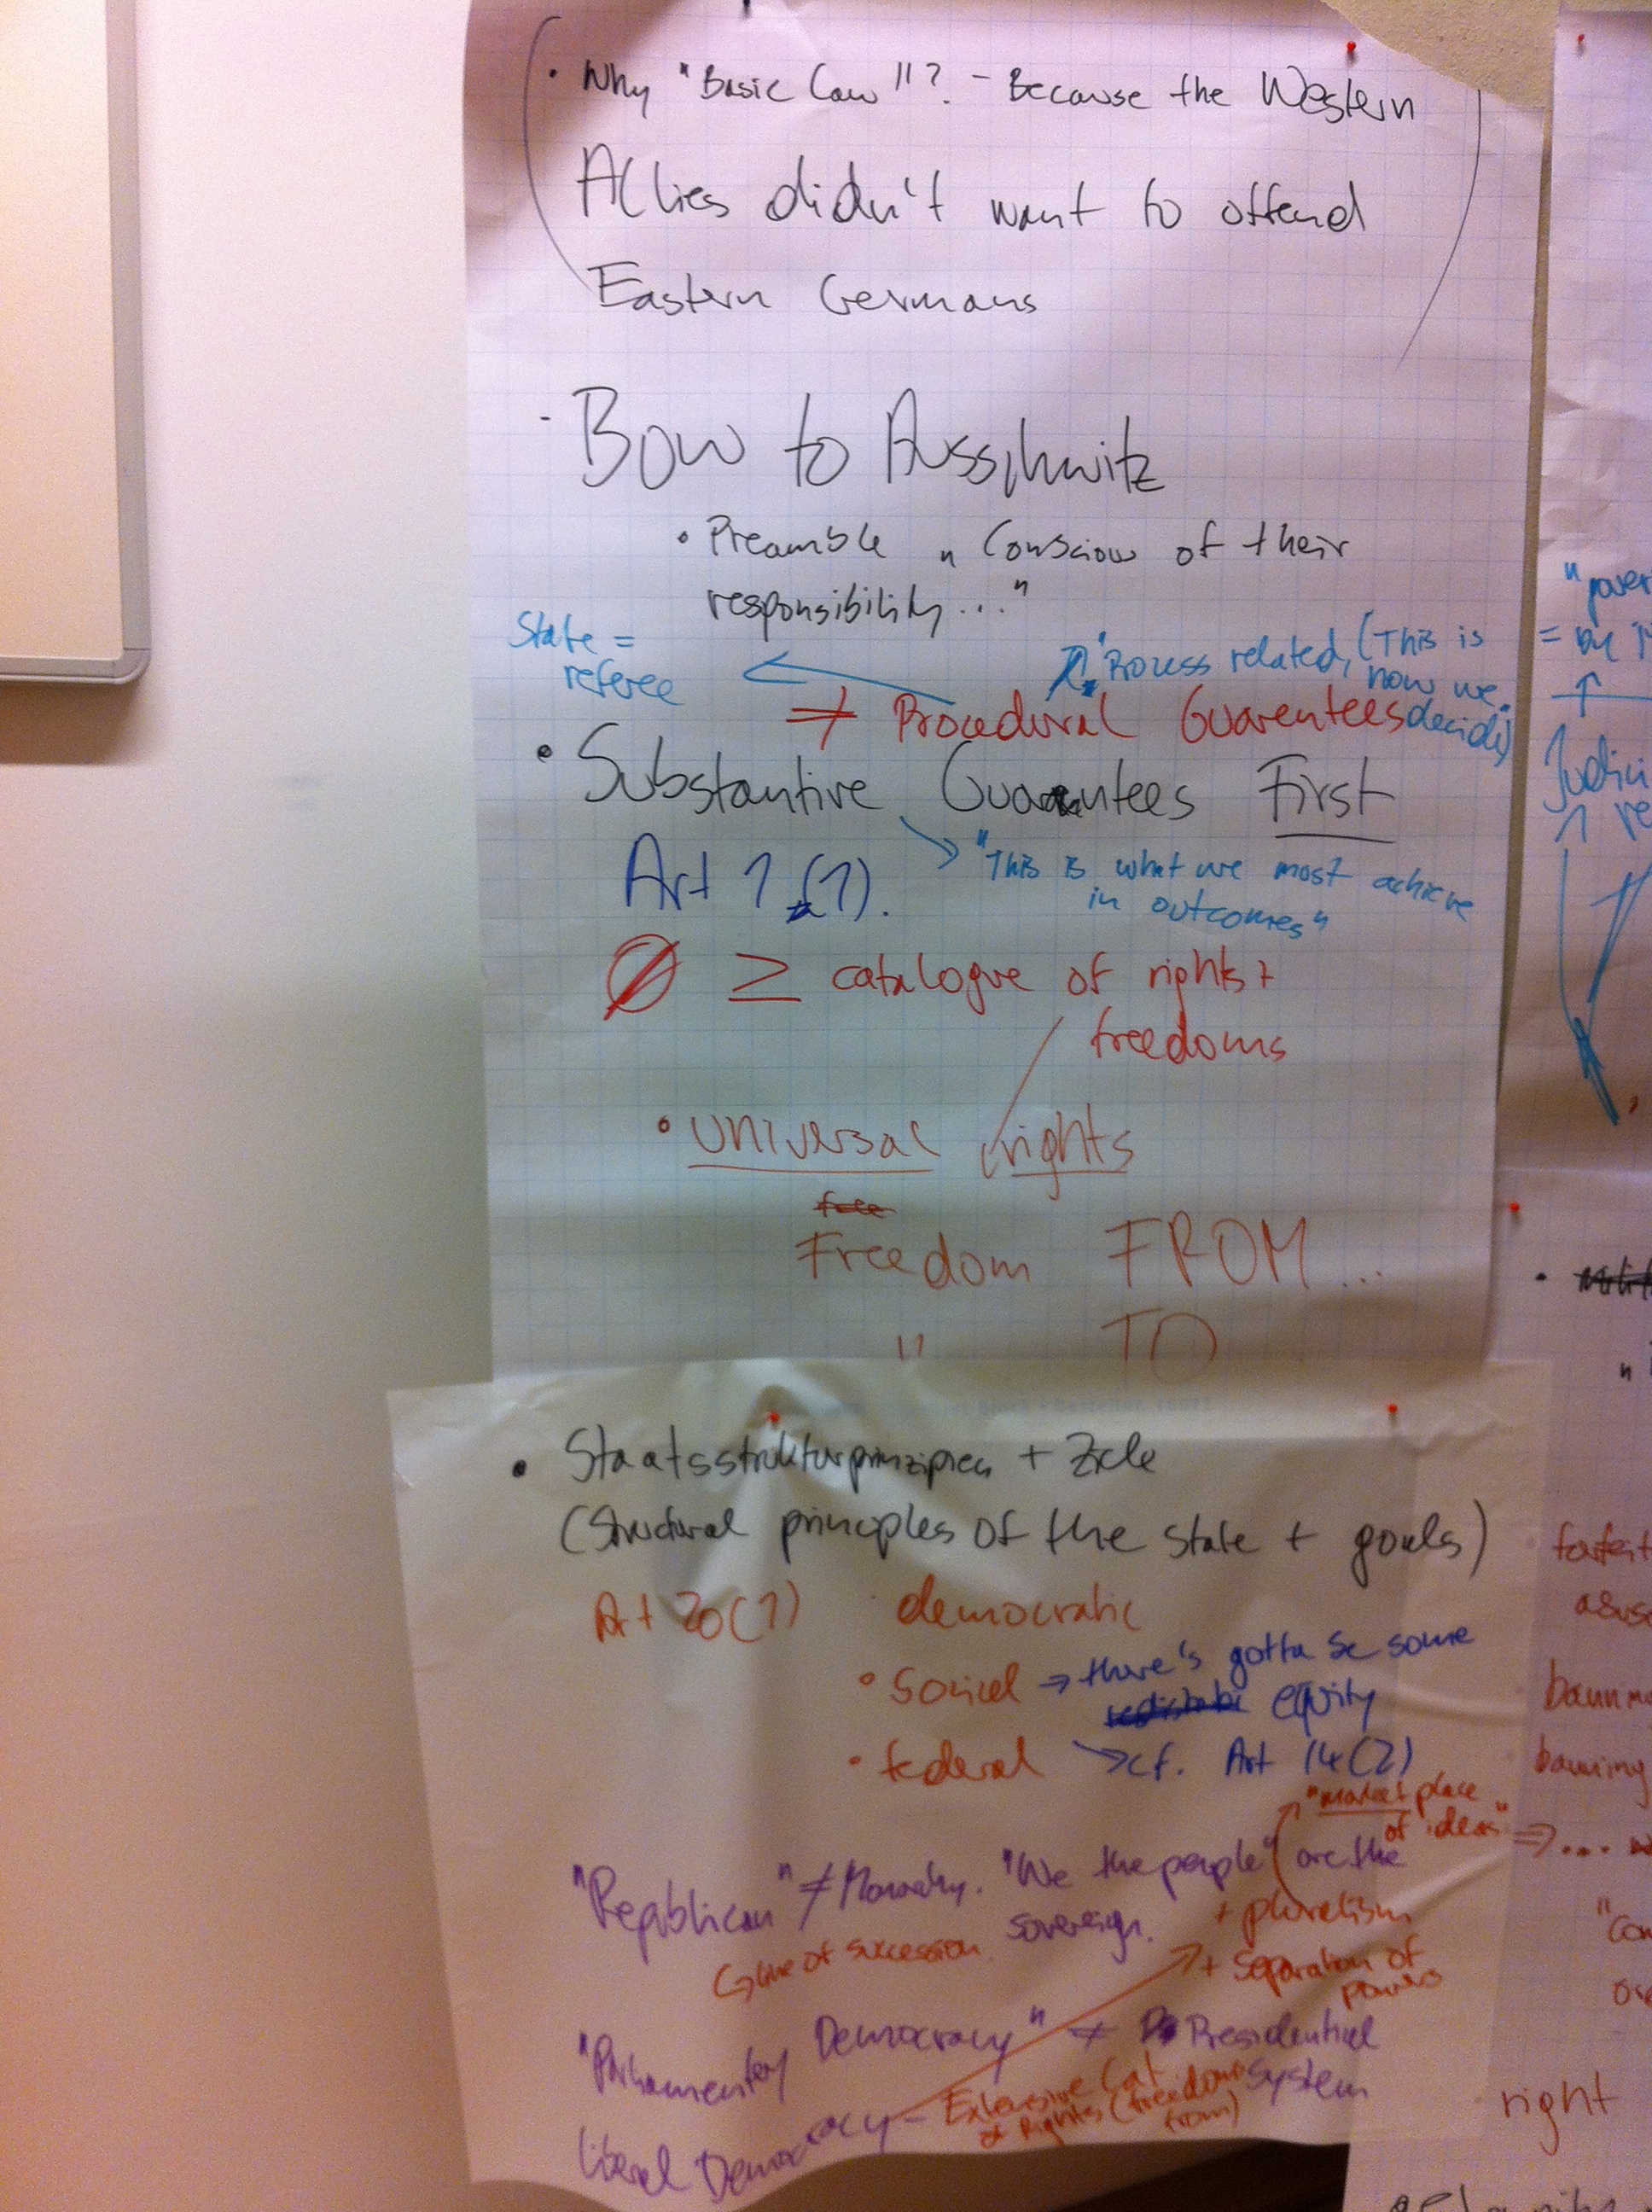 • Why "Basic Law"? - Because the Western
Allies didn't want to offend
Eastern Germans
- Bow to Ausschwitz
• Preamble „Conscious of their
responsibility..."
State =
referee
"Process related, (This is
how we
decide)
≠ Procedural Guarentees
• Substantive Guarantees First
Art 1 (1).
"This is what we most achieve
in outcomes"
Ø ≥ catalogue of rights +
freedoms
• universal rights
Freedom FROM...
" TO
• Staatsstrukturprinzipien + Ziele
(Structural principles of the state + goals)
Art 20(1) democratic
• Social → there's gotta be some
equity
• federal → cf. Art 14(2)
"market place
of ideas" ⇒ ...
"Republican" ≠ Monarchy. "We the people" are the
sovereign.
↳ line of succession
+ pluralism
+ Separation of
powers
"Parliamentary Democracy" ≠ Presidential
System
Liberal Democracy - Extensive Cat.
of Rights (freedoms
from)
"pover
Judici
re
banning
"Con
right